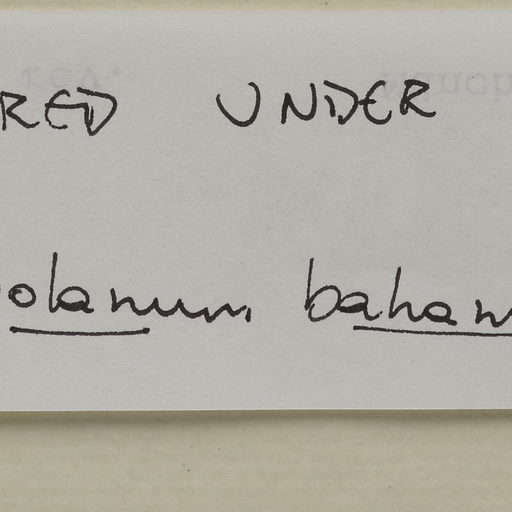 RED UNDER
olanum baham